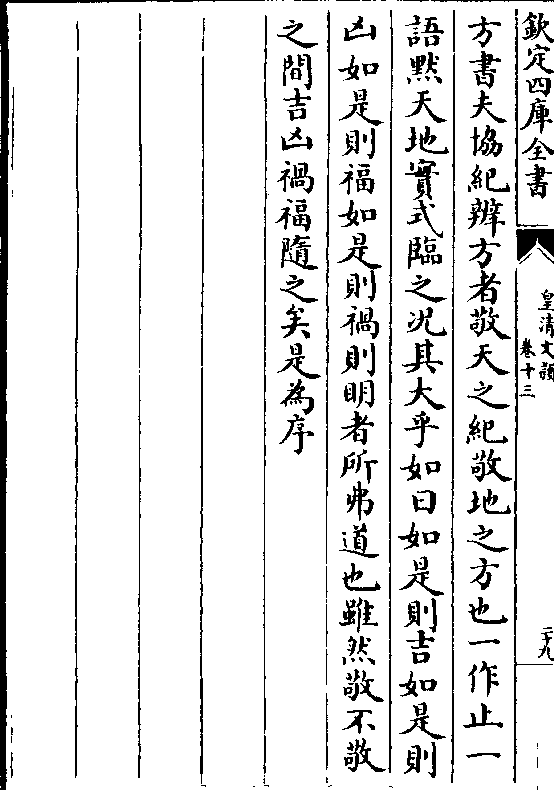 欽定四庫全書
皇清文穎
卷十三
二十九
方書夫協紀辨方者敬天之紀敬地之方也一作止一
語黙天地實式臨之況其大乎如曰如是則吉如是則
凶如是則福如是則禍則明者所弗道也雖然敬不敬
之間吉凶禍福隨之矣是為序